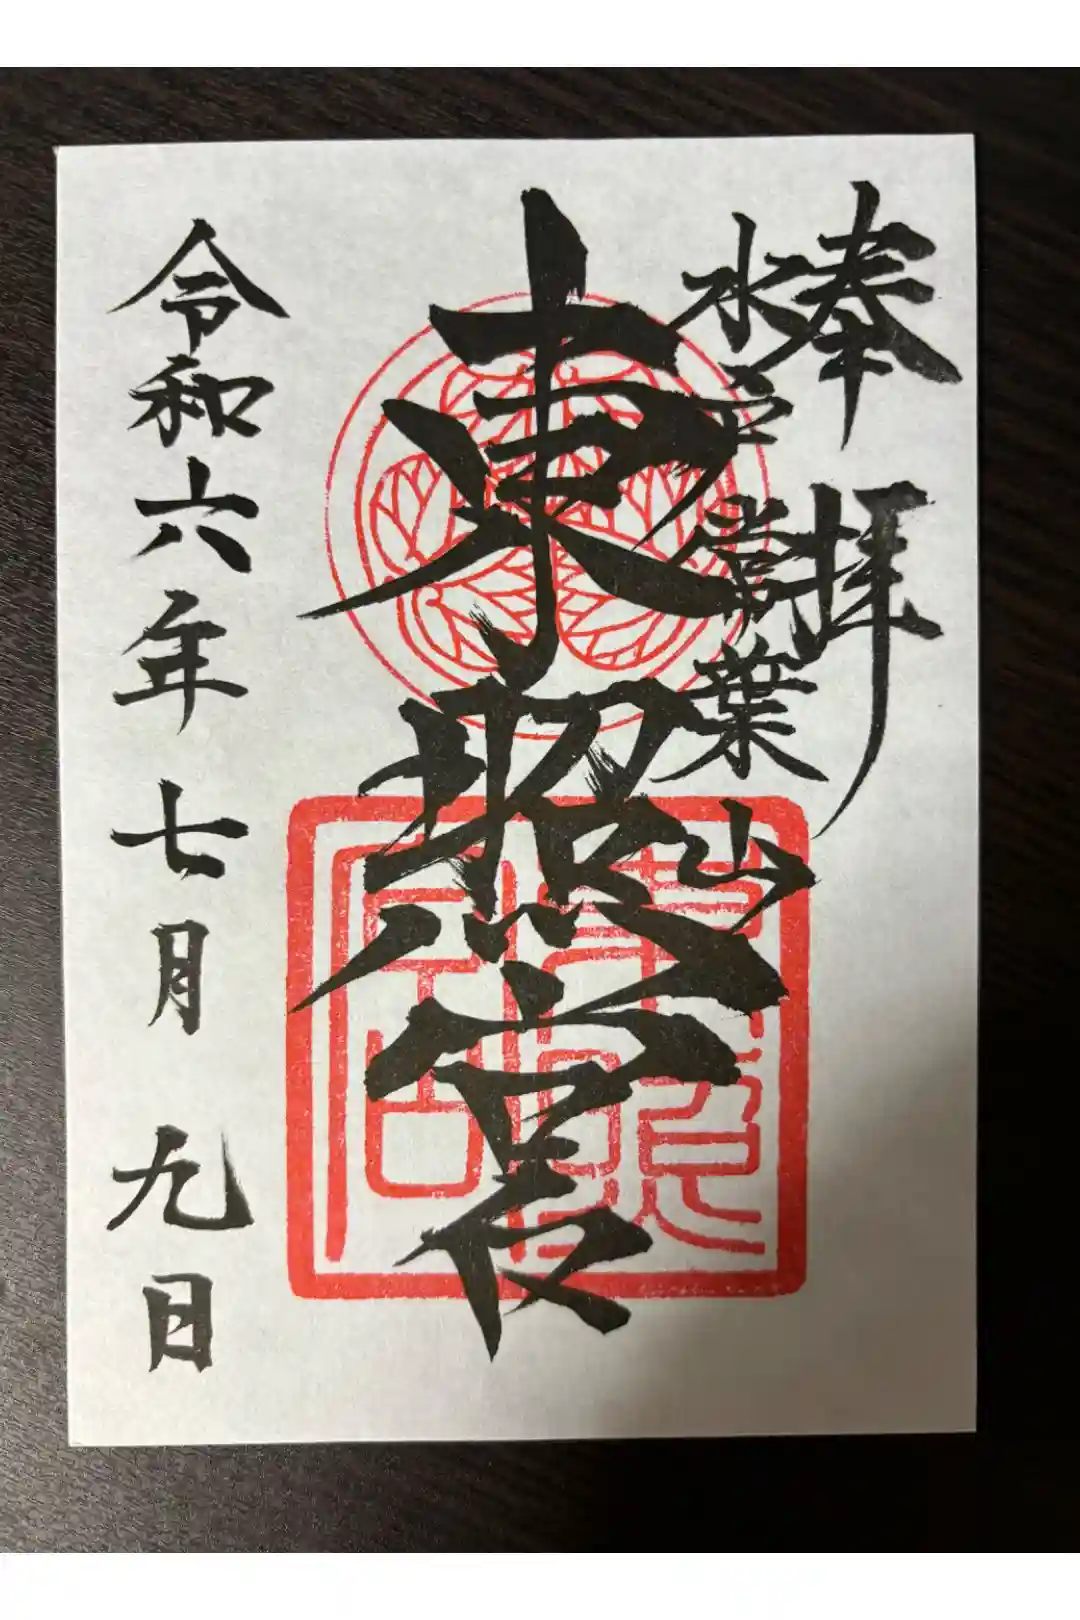 奉拝
水戸常葉山
東照宮
令和六年七月九日